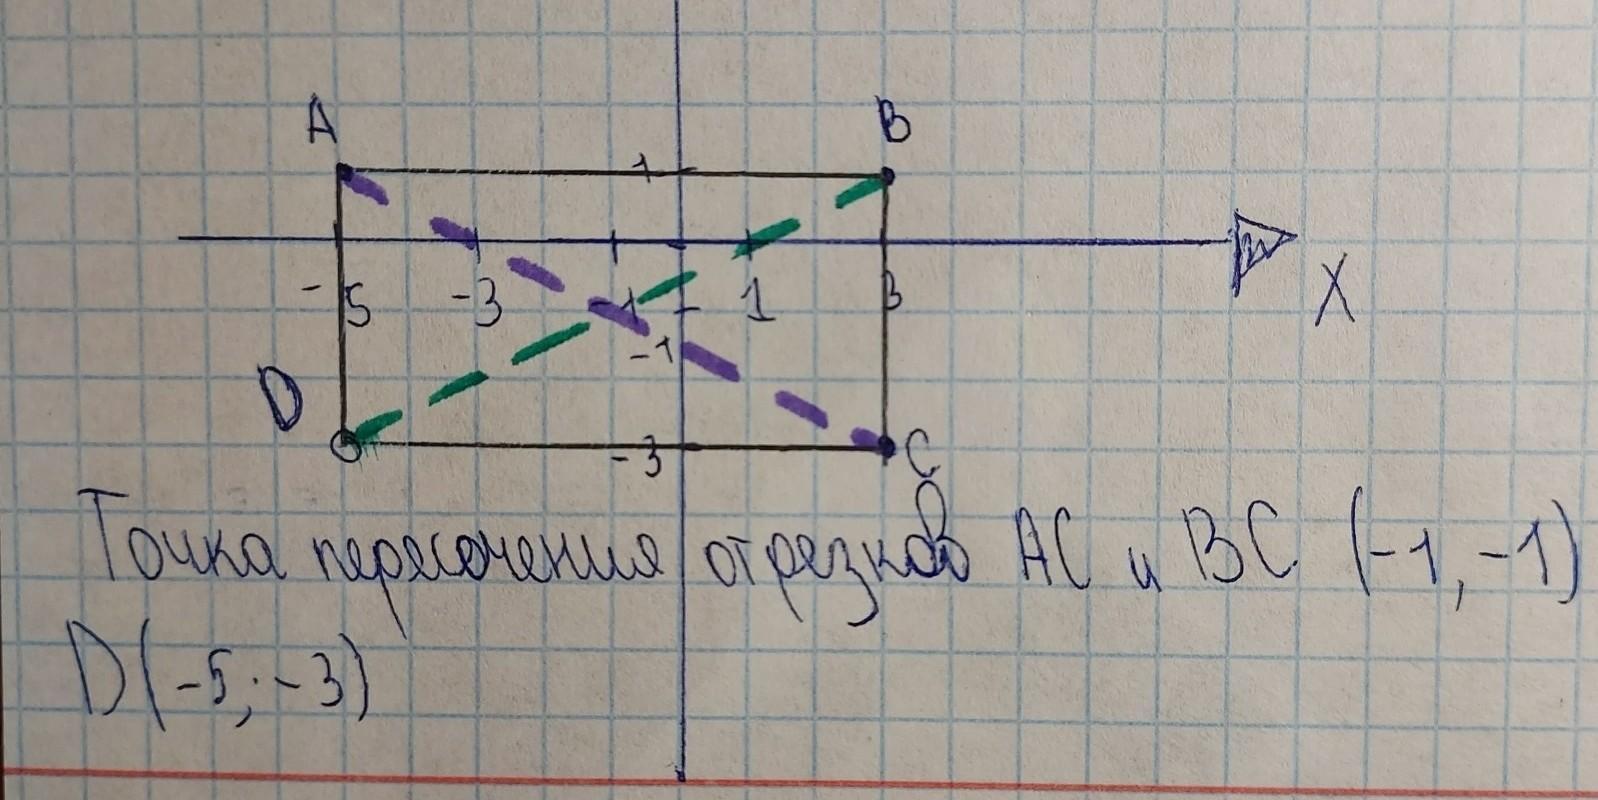 A B
1
-5 -3 -1 1 3 X
-1
D
-3 C
Точка пересечения отрезков AC и BC (-1, -1)
D(-5; -3)